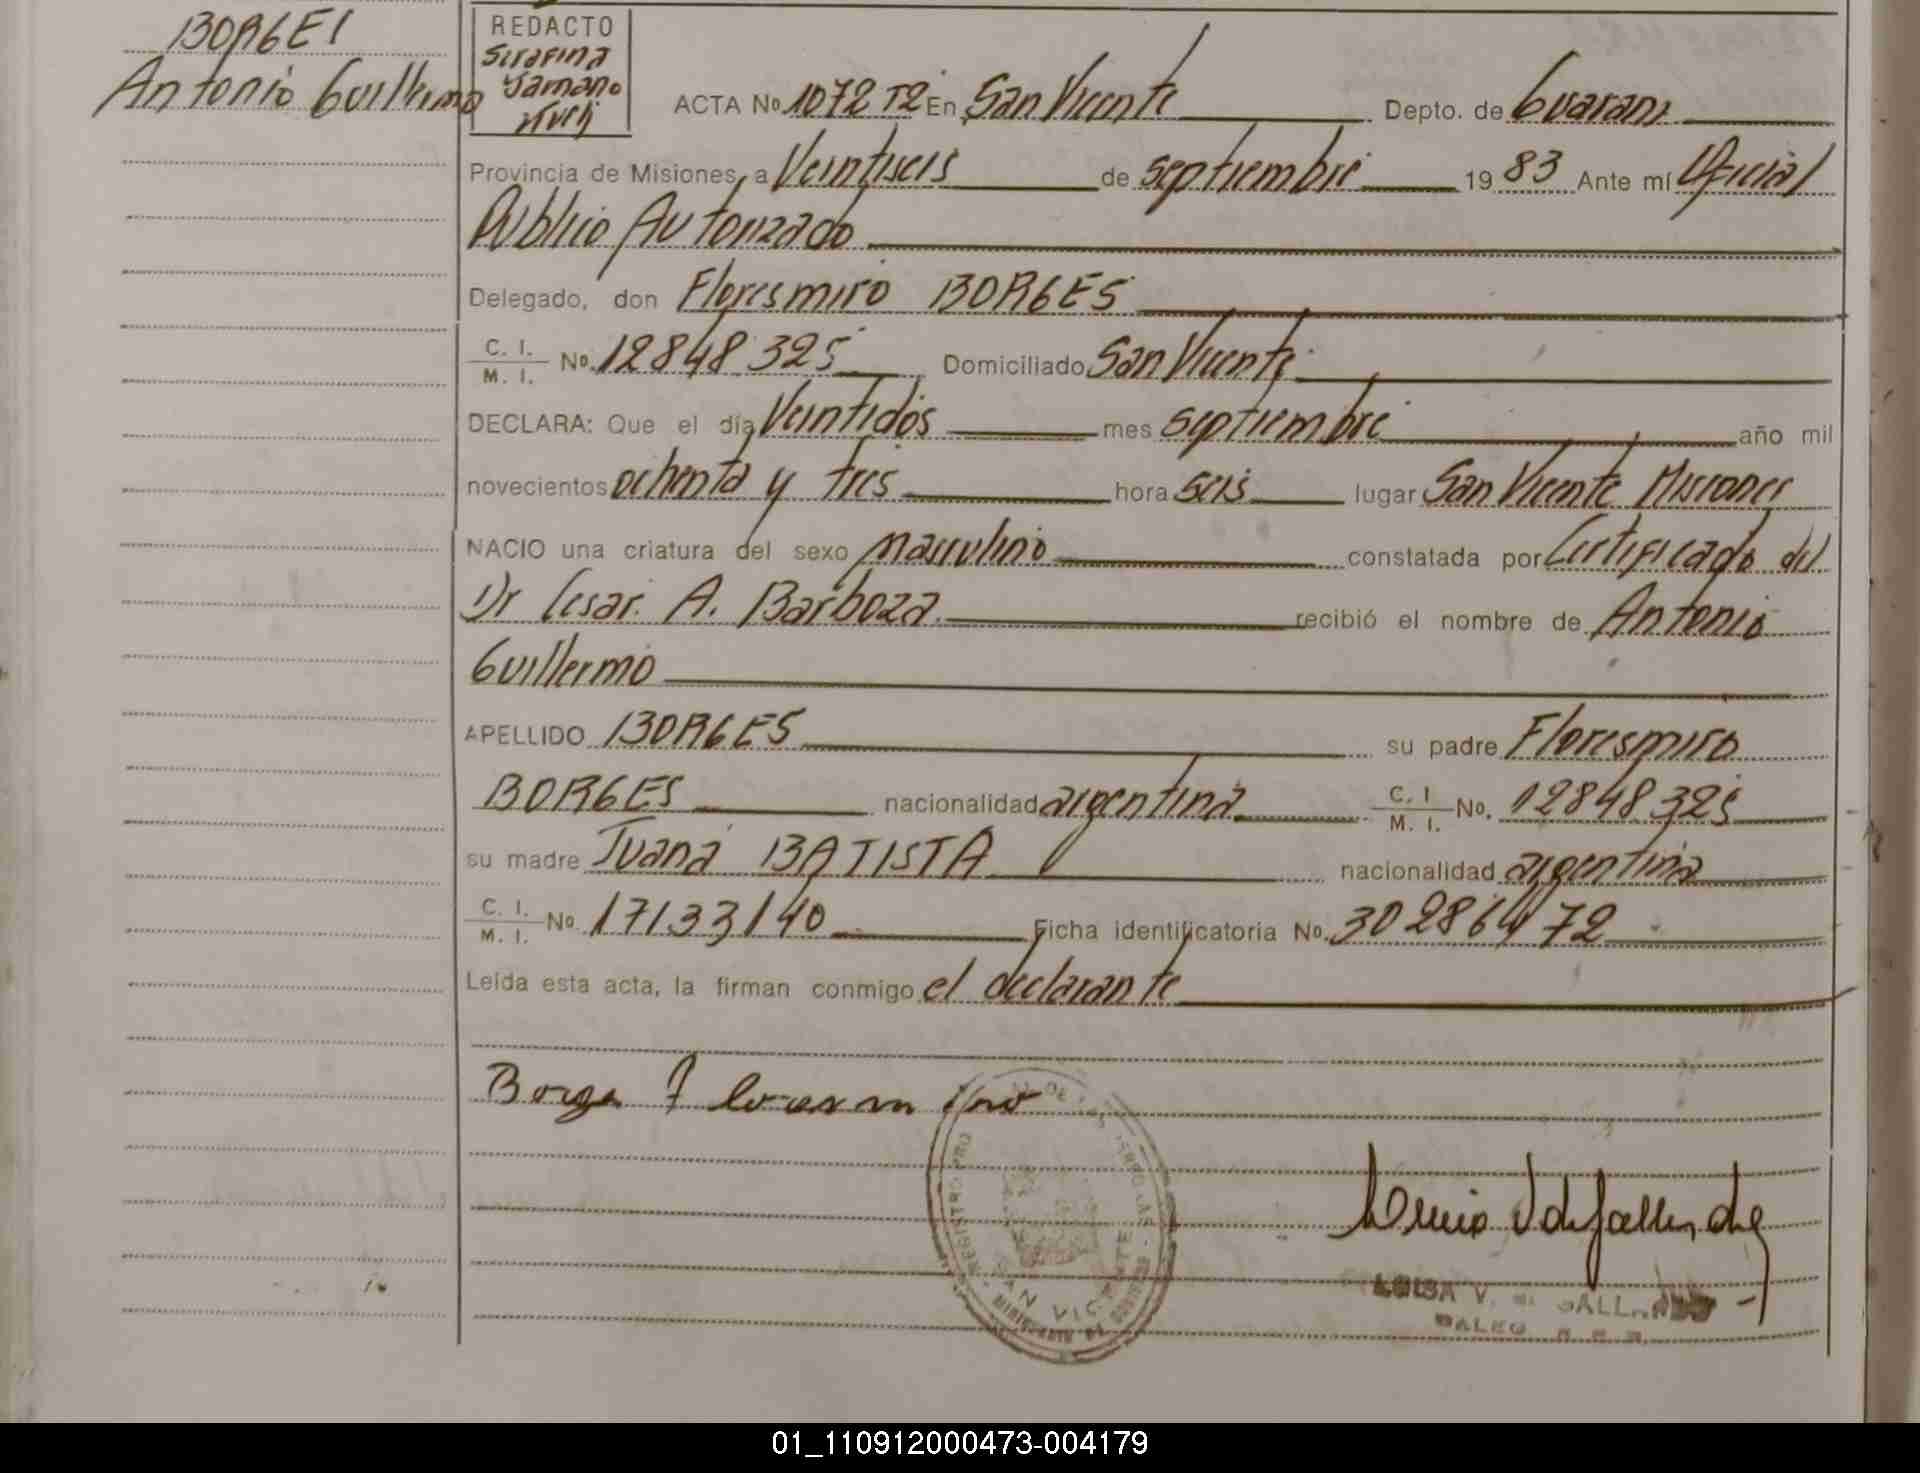 BORGES
Antonio Guillermo
REDACTO
Serafina
ACTA No. 1072 T2 En San Vicente Depto. de Guarani
Provincia de Misiones, a Veintiseis de septiembre 1983 Ante mí Oficial
Publico Autorizado
Delegado, don Floresmiro BORGES
C. I. / M. I. No. 12848325 Domiciliado San Vicente
DECLARA: Que el día Veintidos mes septiembre año mil
novecientos ochenta y tres hora seis lugar San Vicente Misiones
NACIO una criatura del sexo masculino constatada por Certificado del
Dr Cesar. A. Barboza. recibió el nombre de Antonio
Guillermo
APELLIDO BORGES su padre Floresmiro
BORGES nacionalidad argentina C. I / M. I. No. 12848325
su madre Juana BATISTA nacionalidad argentina
C. I. / M. I. No. 17133140 Ficha identificatoria No. 30286472
Leída esta acta, la firman conmigo el declarante
SAN VICENTE
01_110912000473-004179